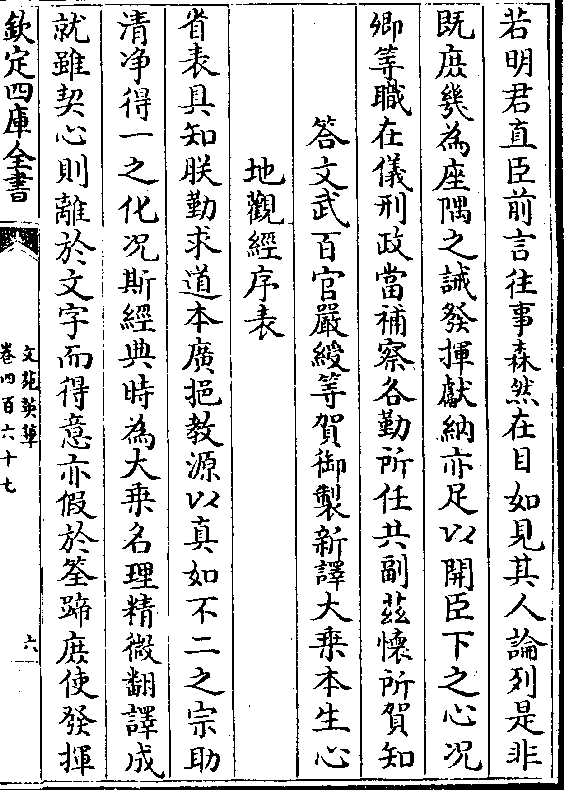 若明君直臣前言往事森然在目如見其人論列是非
既庶幾為座隅之誡發揮獻納亦足以開臣下之心况
卿等職在儀刑政當補察各勤所任共副茲懷所賀知
答文武百官嚴綬等賀御製新譯大乗本生心
地觀經序表
省表具知朕勤求道本廣挹教源以真如不二之宗助
清净得一之化况斯經典時為大乗名理精微翻譯成
就雖契心則離於文字而得意亦假於筌蹄庶使發揮
欽定四庫全書
文苑英華
卷四百六十七
六